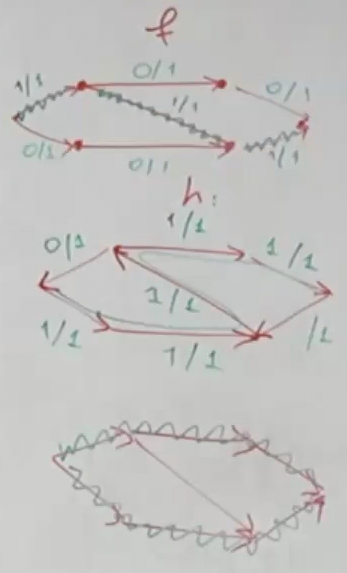 f
1/1 0/1 1/1 0/1
0/1 0/1 1/1
h:
1/1
0/1 1/1
1/1
1/1 1/1 /1